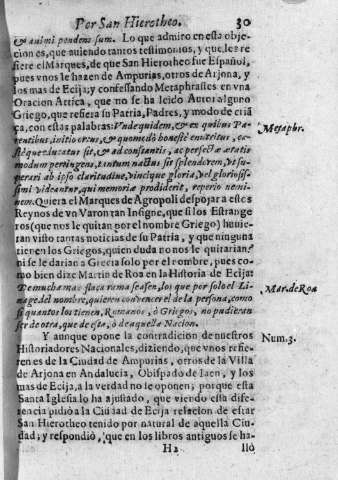 Por San Hierotheo. 30
& animi pendens sum. Lo que admiro en esta obje-
ciones, que auiendo tantos testimonios, y que les re
fiere el Marques, de que San Hierotheo fue Español,
pues vnos le hazen de Ampurias, otros de Arjona, y
los mas de Ecija; y confessando Metaphrastes en vna
Oracion Attica, que no se ha leido Autor alguno
Griego, que refiera su Patria, Padres, y modo de criã
ça, con estas palabras: Vnde quidem, & ex quibus Pa-
rentibus, initio ortus, & quomodo honestè enutritus, ex-
stéque educatus sit, & ad constantis, ac perfectæ ætatis
modum pertingens, tantum nactus sit splendorem, vt su-
perari ab ipso claritudine, vincique gloria, vel gloriosis-
simi videantur, qui memoriæ prodiderit, reperio nemi-
nem. Quiera el Marques de Agropoli despojar a estos
Metaphr.
Reynos de vn Varon tan Insigne, que si los Estrange
ros (que nos le quitan por el nombre Griego) huuie-
ran visto tantas noticias de su Patria, y que ninguna
tienen los Griegos, quien duda no nos le quitarian,
ni se le darian a Grecia solo por el nombre, pues co-
mo bien dize Martin de Roa en la Historia de Ecija:
De mucha mas flaca rama se asen, los que por solo el Li-
nage del nombre, quieren convencer el de la persona, como
Mar. de Roa
si quantos los tienen, Romanos, ò Griegos, no pudieran
ser de otra, que de esta, ò de aquella Nacion.
Y aunque opone la contradicion de nuestros
Num. 3.
Historiadores Nacionales, diziendo, que vnos refie-
ren es de la Ciudad de Ampurias, otros de la Villa
de Arjona en Andalucia, Obispado de Iaen, y los
mas de Ecija, a la verdad no le oponen; porque esta
Santa Iglesia lo ha ajustado, que viendo esta dife-
rencia pidiò a la Ciudad de Ecija relacion de estar
San Hierotheo tenido por natural de aquella Ciu-
dad; y respondiò, que en los libros antiguos se ha-
H2 llò